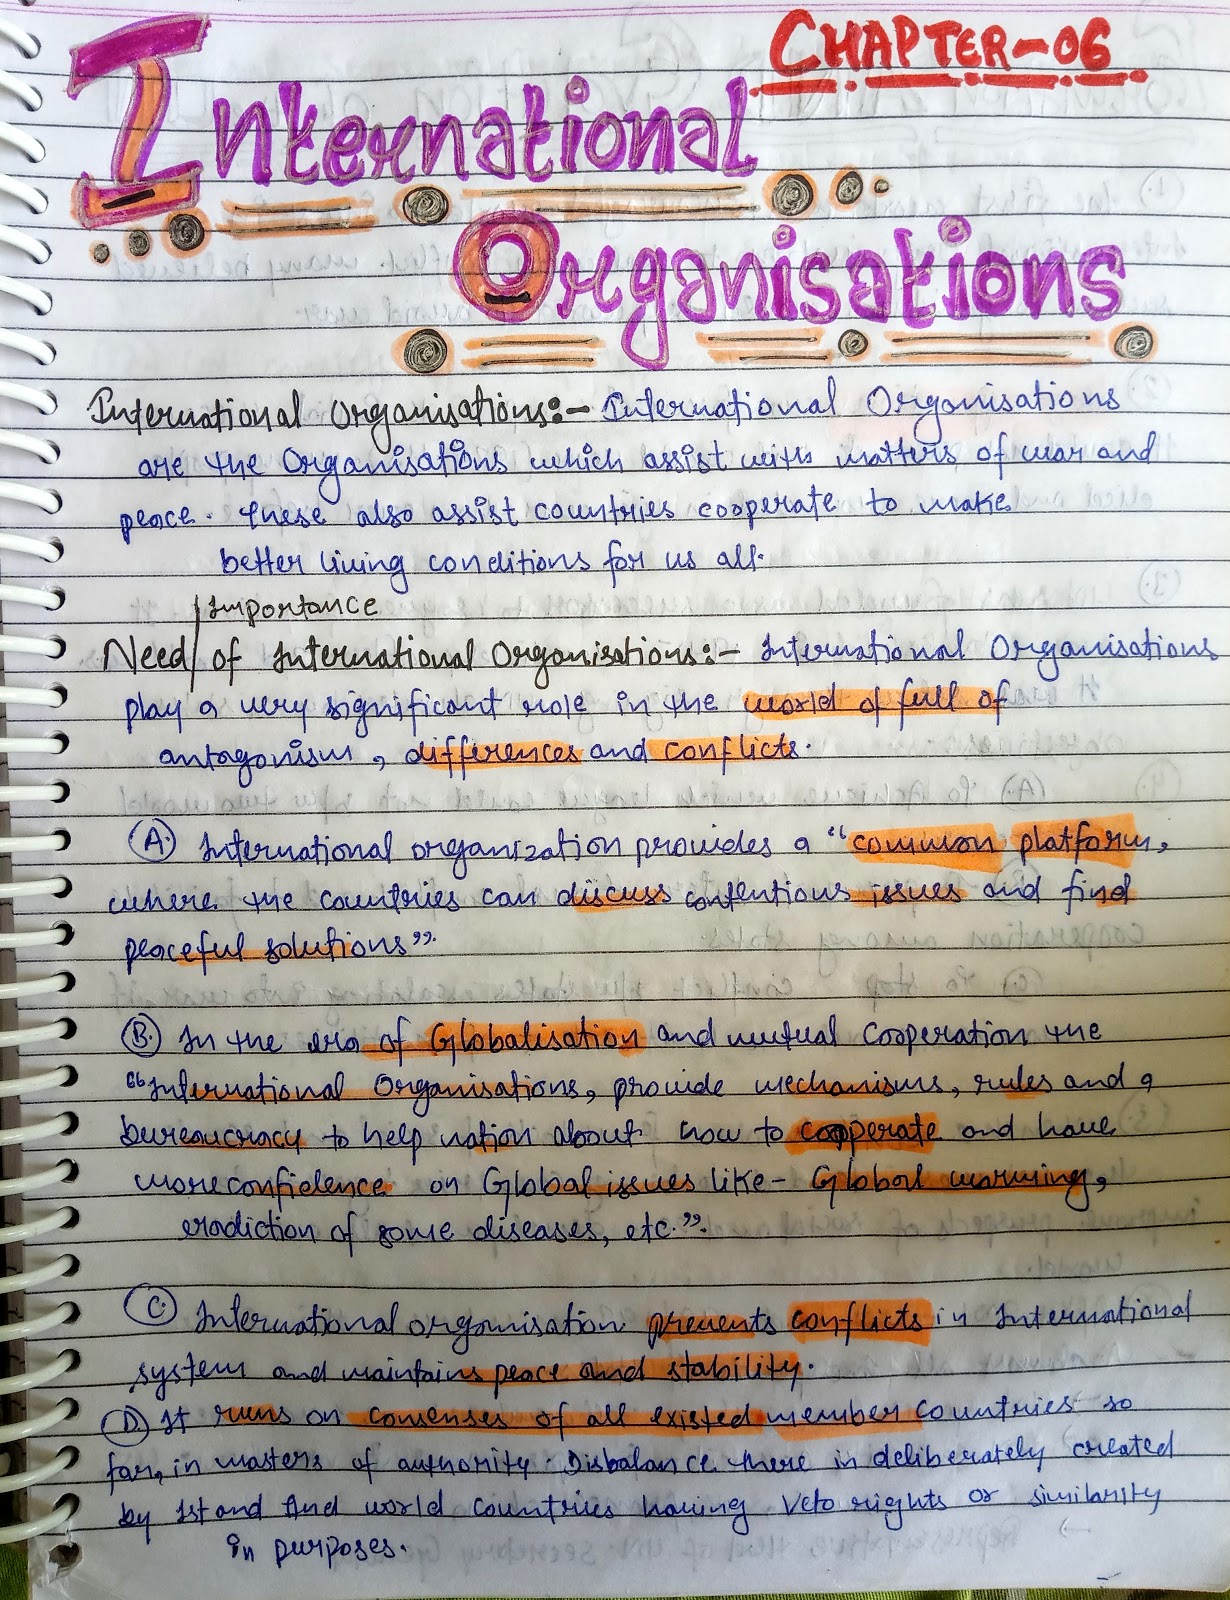 CHAPTER-06
International
Organisations
International Organisations:- International Organisations
are the Organisations which assist with matters of war and
peace. These also assist countries cooperate to make
better living conditions for us all.
Importance
Need/ of International Organisations:- International Organisations
play a very significant role in the world of full of
antagonism, differences and conflicts.
(A.) International organization provides a "common platform,
where the countries can discuss contentious issues and find
peaceful solutions".
(B.) In the era of Globalisation and mutual Cooperation the
"International Organisations, provide mechanisms, rules and a
bureaucracy to help nation about how to cooperate and have
more confidence on Global issues like- Global warming,
eradiction of some diseases, etc.".
(C.) International organisation prevents conflicts in International
system and maintains peace and stability.
(D.) It runs on consenses of all existed member countries so
far, in masters of authority. Disbalance there in deliberately created
by 1st and IInd world countries having Veto rights or similarity
in purposes.